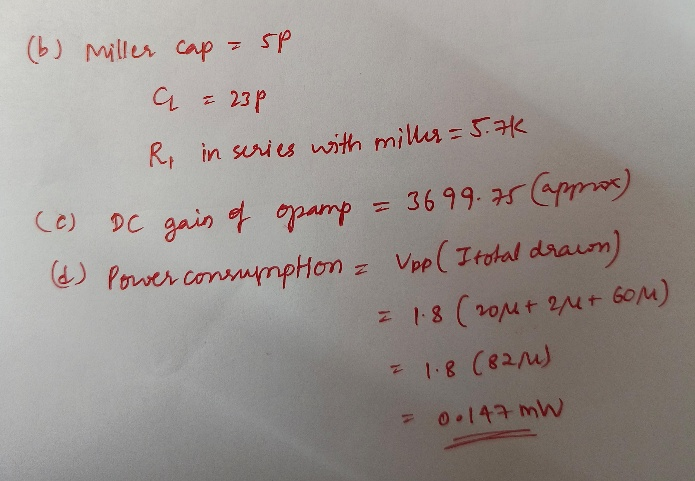 (b) Miller cap = 5p
CL = 23p
R1 in series with miller = 5.7K
(c) DC gain of opamp = 3699.75 (approx)
(d) Power consumption = VDD (Itotal drawn)
= 1.8 (20μ + 2μ + 60μ)
= 1.8 (82μ)
= 0.147 mW